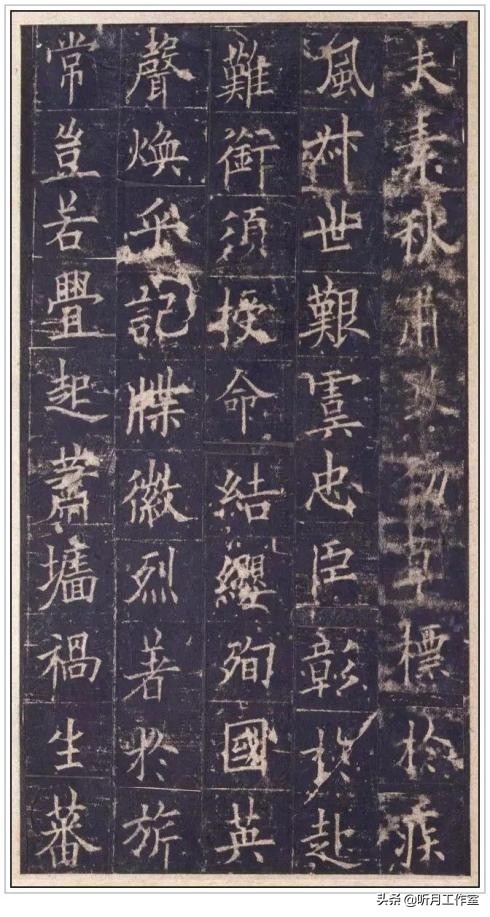 夫素秋肅煞勁草標於疾
風叔世艱虞忠臣彰於赴
難銜須授命結纓殉國英
聲煥乎記牒徽烈著於旂
常豈若舋起蕭墻禍生蕃
头条 @听月工作室